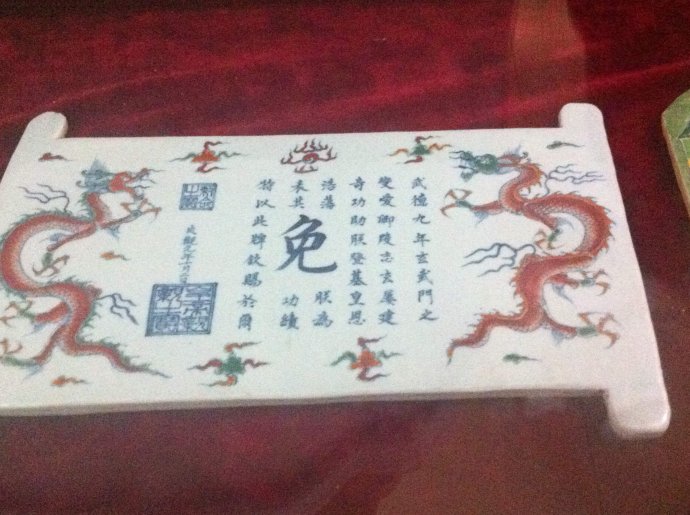 武德九年玄武門之
變愛卿陵志玄屢建
奇功助朕登基皇恩
浩蕩 朕為
表其 功績
免
特以此牌欽賜於爾